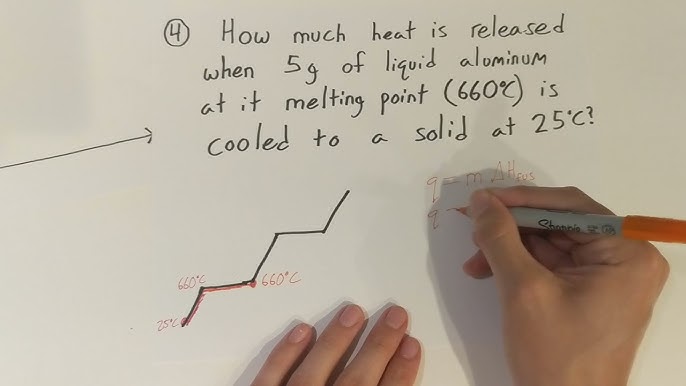 ④ How much heat is released
when 5g of liquid aluminum
at it melting point (660°C) is
cooled to a solid at 25°C?
q = m ΔHfus
q
660°C
660°C
25°C
Sharpie